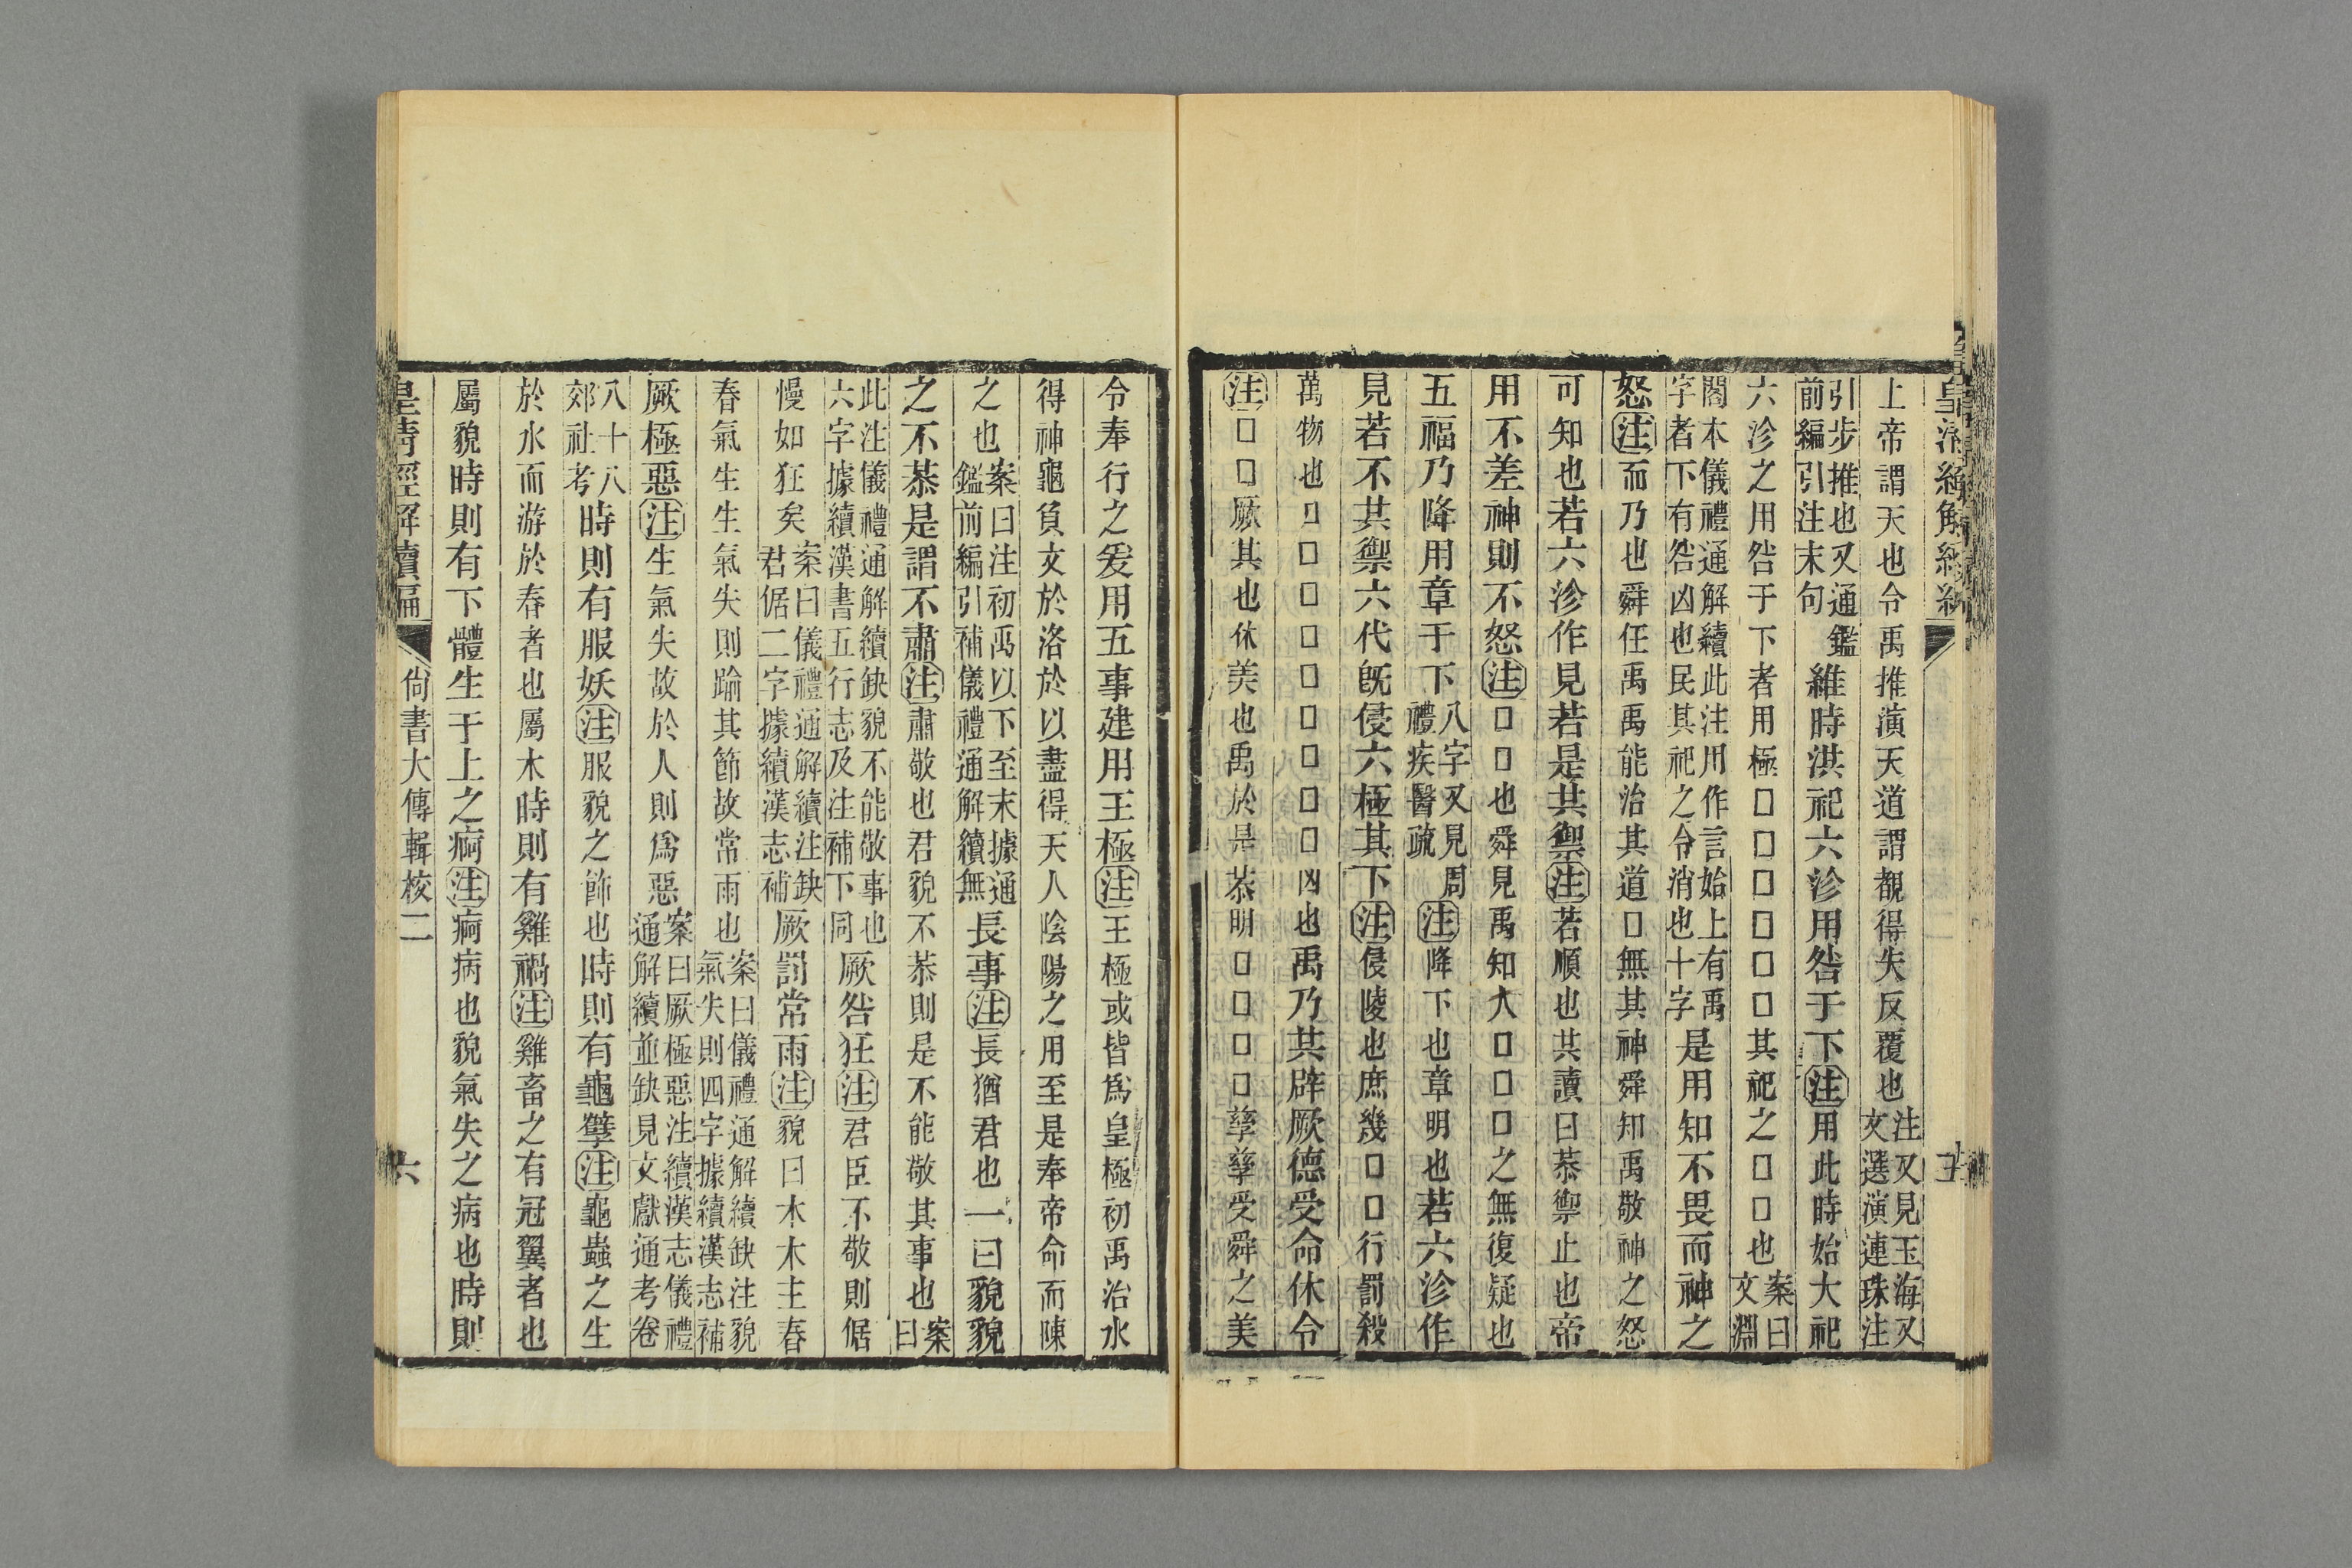 上帝謂天也令禹推演天道謂覩得失反覆也注又見玉海又文選演連珠注
引步推也又通鑑前編引注末句維時洪祀六沴用咎于下注用此時始大祀
六沴之用咎于下者用極□□□□□□其祀之□□□也案曰文淵
閣本儀禮通解續此注用作言始上有禹字者下有咎凶也民其祀之令消也十字是用知不畏而神之
怒注而乃也舜任禹禹能治其道□無其神舜知禹敬神之怒
可知也若六沴作見若是共禦注若順也共讀曰恭禦止也帝
用不差神則不怒注□□也舜見禹知大□□□之無復疑也
五福乃降用章于下八字又見周禮疾醫疏注降下也章明也若六沴作
見若不共禦六代既侵六極其下注侵陵也庶幾□□行罰殺
萬物也□□□□□□□□□凶也禹乃共辟厥德受命休令
注□□厥其也休美也禹於是恭明□□□□孳孳受舜之美
令奉行之爰用五事建用王極注王極或皆爲皇極初禹治水
得神龜負文於洛於以盡得天人陰陽之用至是奉帝命而陳
之也案曰注初禹以下至末據通鑑前編引補儀禮通解續無長事注長猶君也一曰貌貌
之不恭是謂不肅注肅敬也君貌不恭則是不能敬其事也案曰
此注儀禮通解續缺貌不能敬事也六字據續漢書五行志及注補下同厥咎狂注君臣不敬則倨
慢如狂矣案曰儀禮通解續注缺君倨二字據續漢志補厥罰常雨注貌曰木木主春
春氣生生氣失則踰其節故常雨也案曰儀禮通解續缺注貌氣失則四字據續漢志補
厥極惡注生氣失故於人則爲惡案曰厥極惡注續漢志儀禮通解續並缺見文獻通考卷
八十八郊社考時則有服妖注服貌之飾也時則有龜孽注龜蟲之生
於水而游於春者也屬木時則有雞禍注雞畜之有冠翼者也
屬貌時則有下體生于上之痾注痾病也貌氣失之病也時則
皇清經解續編 尚書大傳輯校二 六